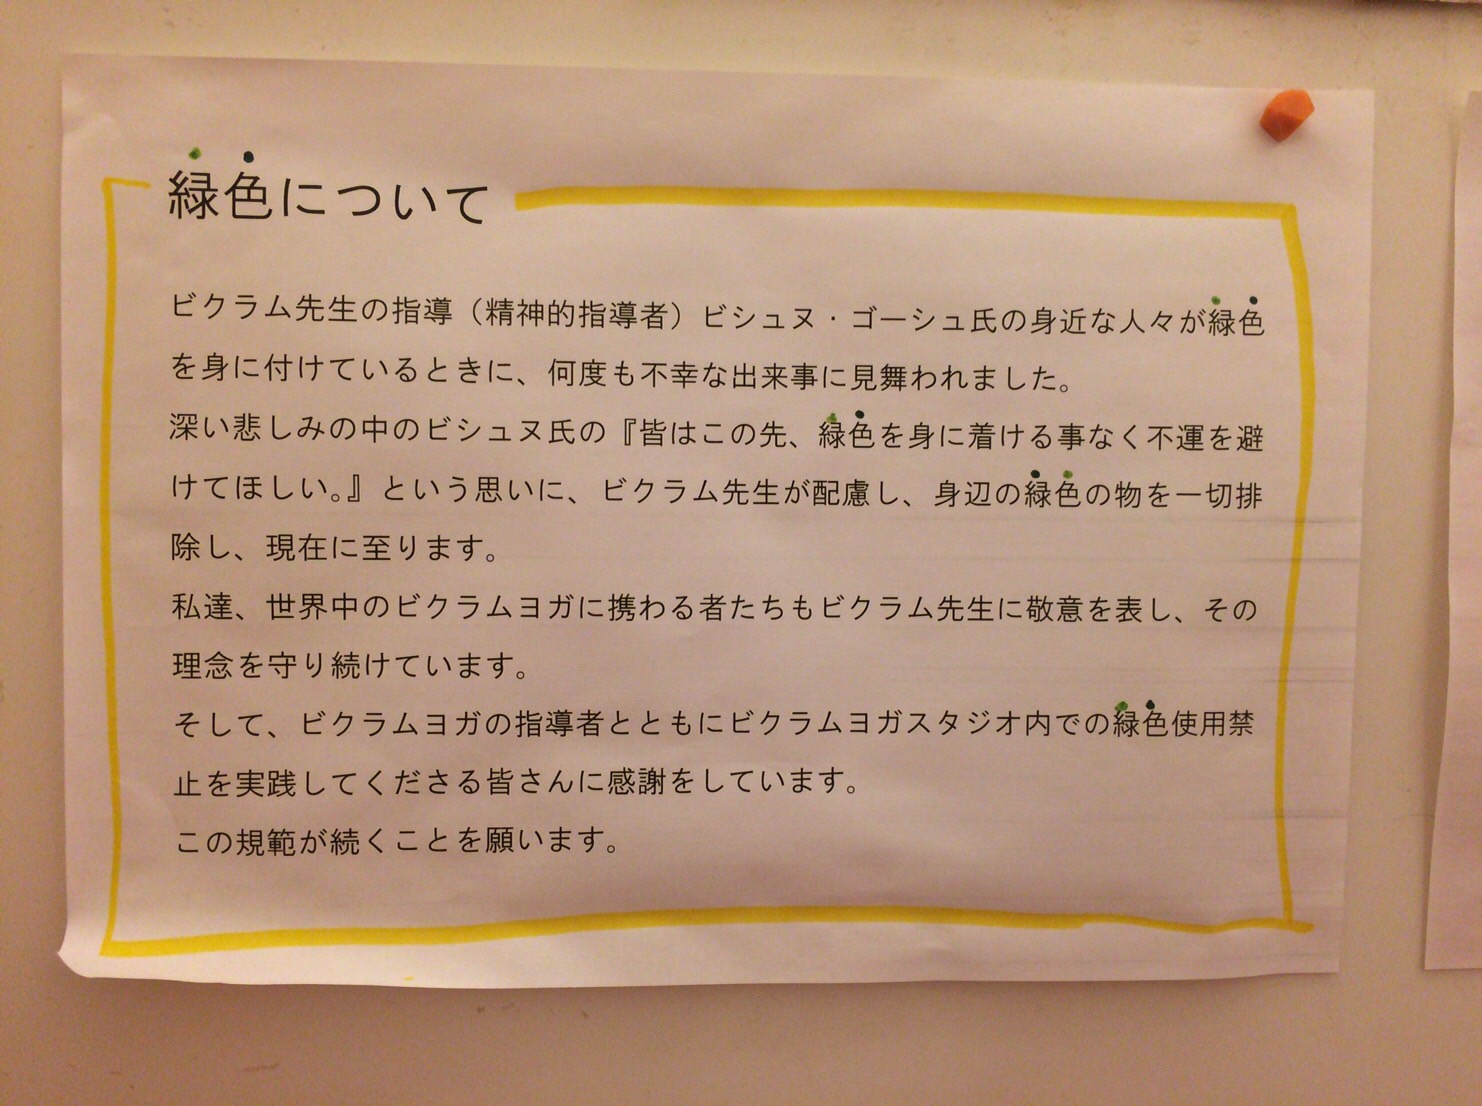 緑色について
ビクラム先生の指導（精神的指導者）ビシュヌ・ゴーシュ氏の身近な人々が緑色
を身に付けているときに、何度も不幸な出来事に見舞われました。
深い悲しみの中のビシュヌ氏の『皆はこの先、緑色を身に着ける事なく不運を避
けてほしい。』という思いに、ビクラム先生が配慮し、身辺の緑色の物を一切排
除し、現在に至ります。
私達、世界中のビクラムヨガに携わる者たちもビクラム先生に敬意を表し、その
理念を守り続けています。
そして、ビクラムヨガの指導者とともにビクラムヨガスタジオ内での緑色使用禁
止を実践してくださる皆さんに感謝をしています。
この規範が続くことを願います。